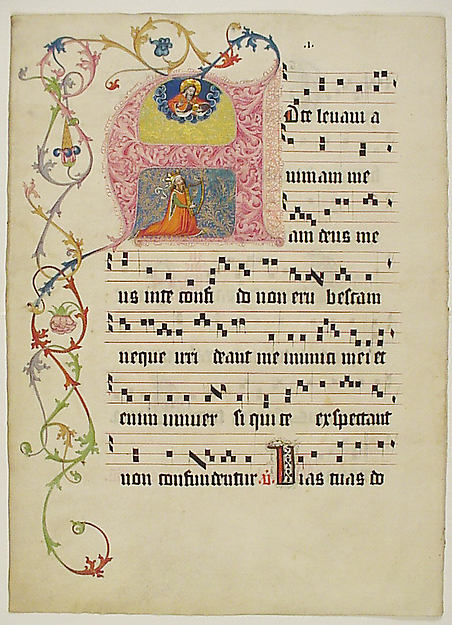 .i.
ADte leuaui a
nimam me
am deus me
us inte confi do non eru bescam
neque irri deant me inimici mei et
enim uniuer si qui te exspectant
non confundentur. v. Uias tuas do